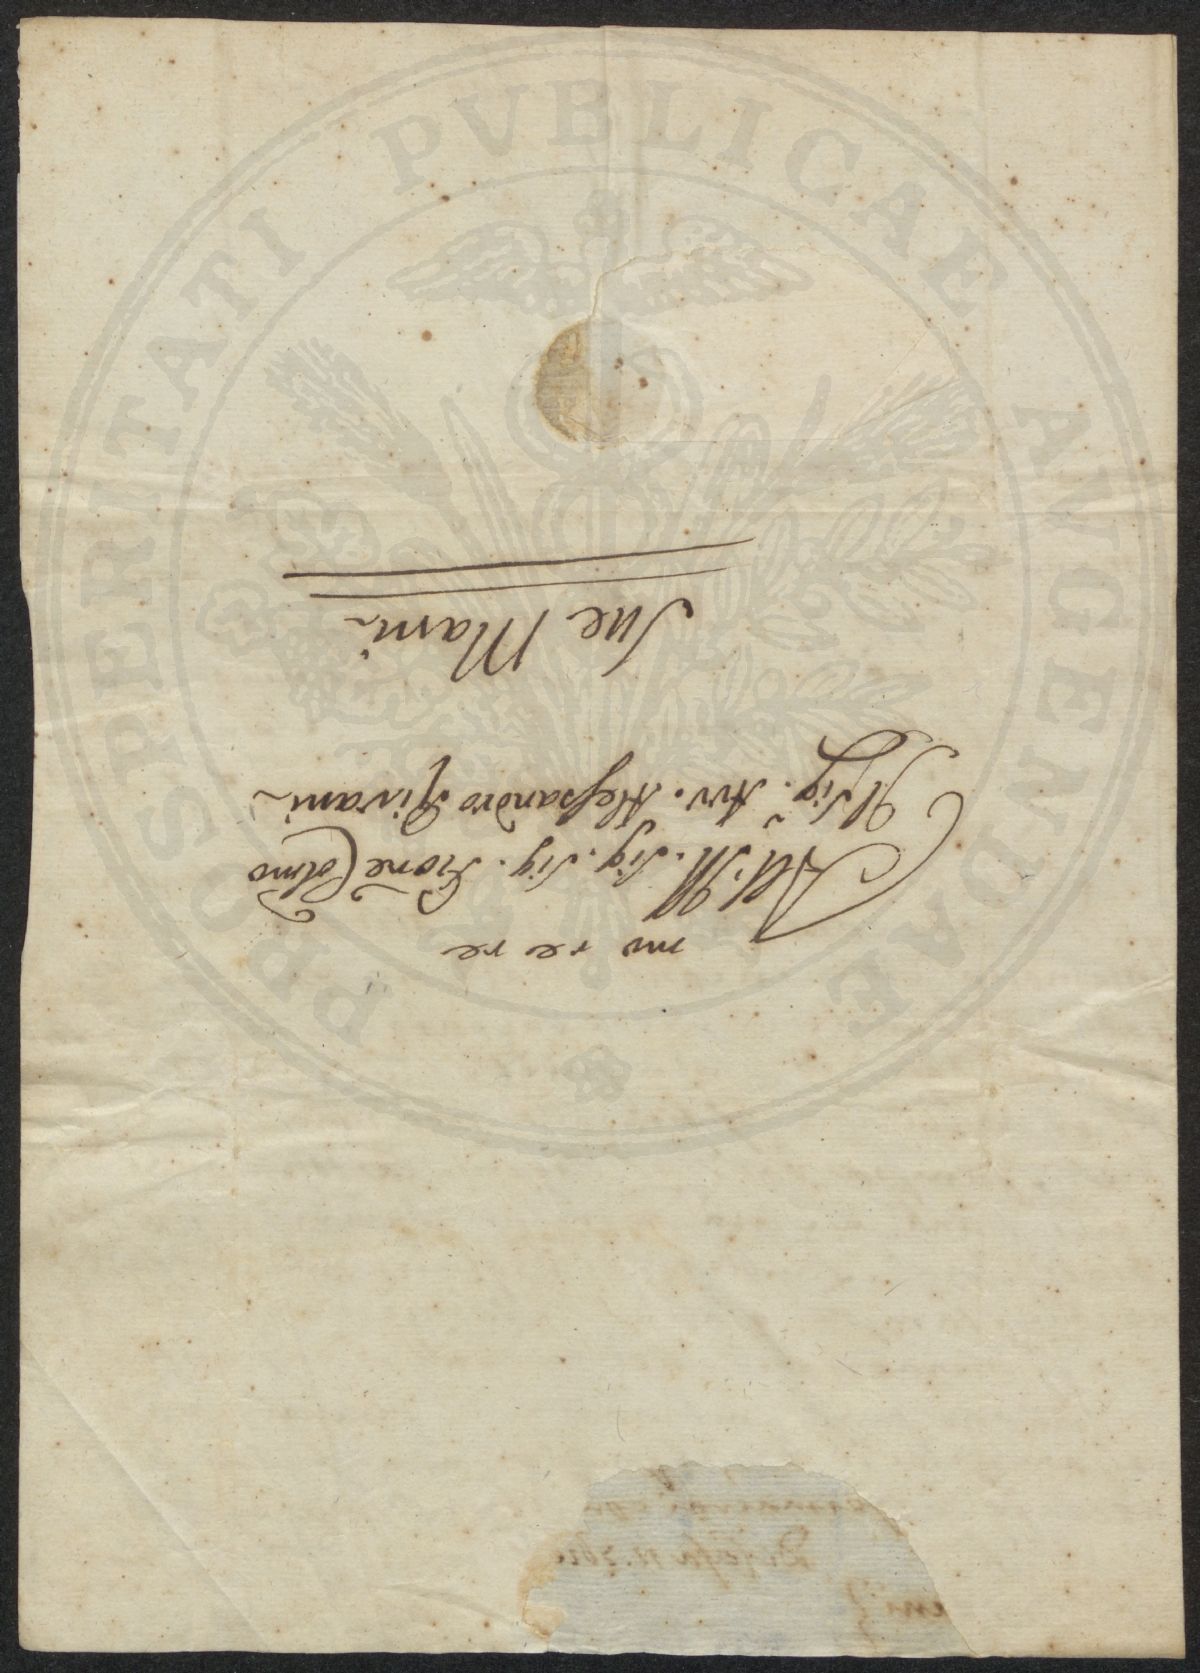 PROSPERITATI PVBLICAE AVGENDAE
mo re re
All. Ill. Sig. Sig. Prone Colmo
Il Sig. Avv. Alessandro Rivani
Sue Mani